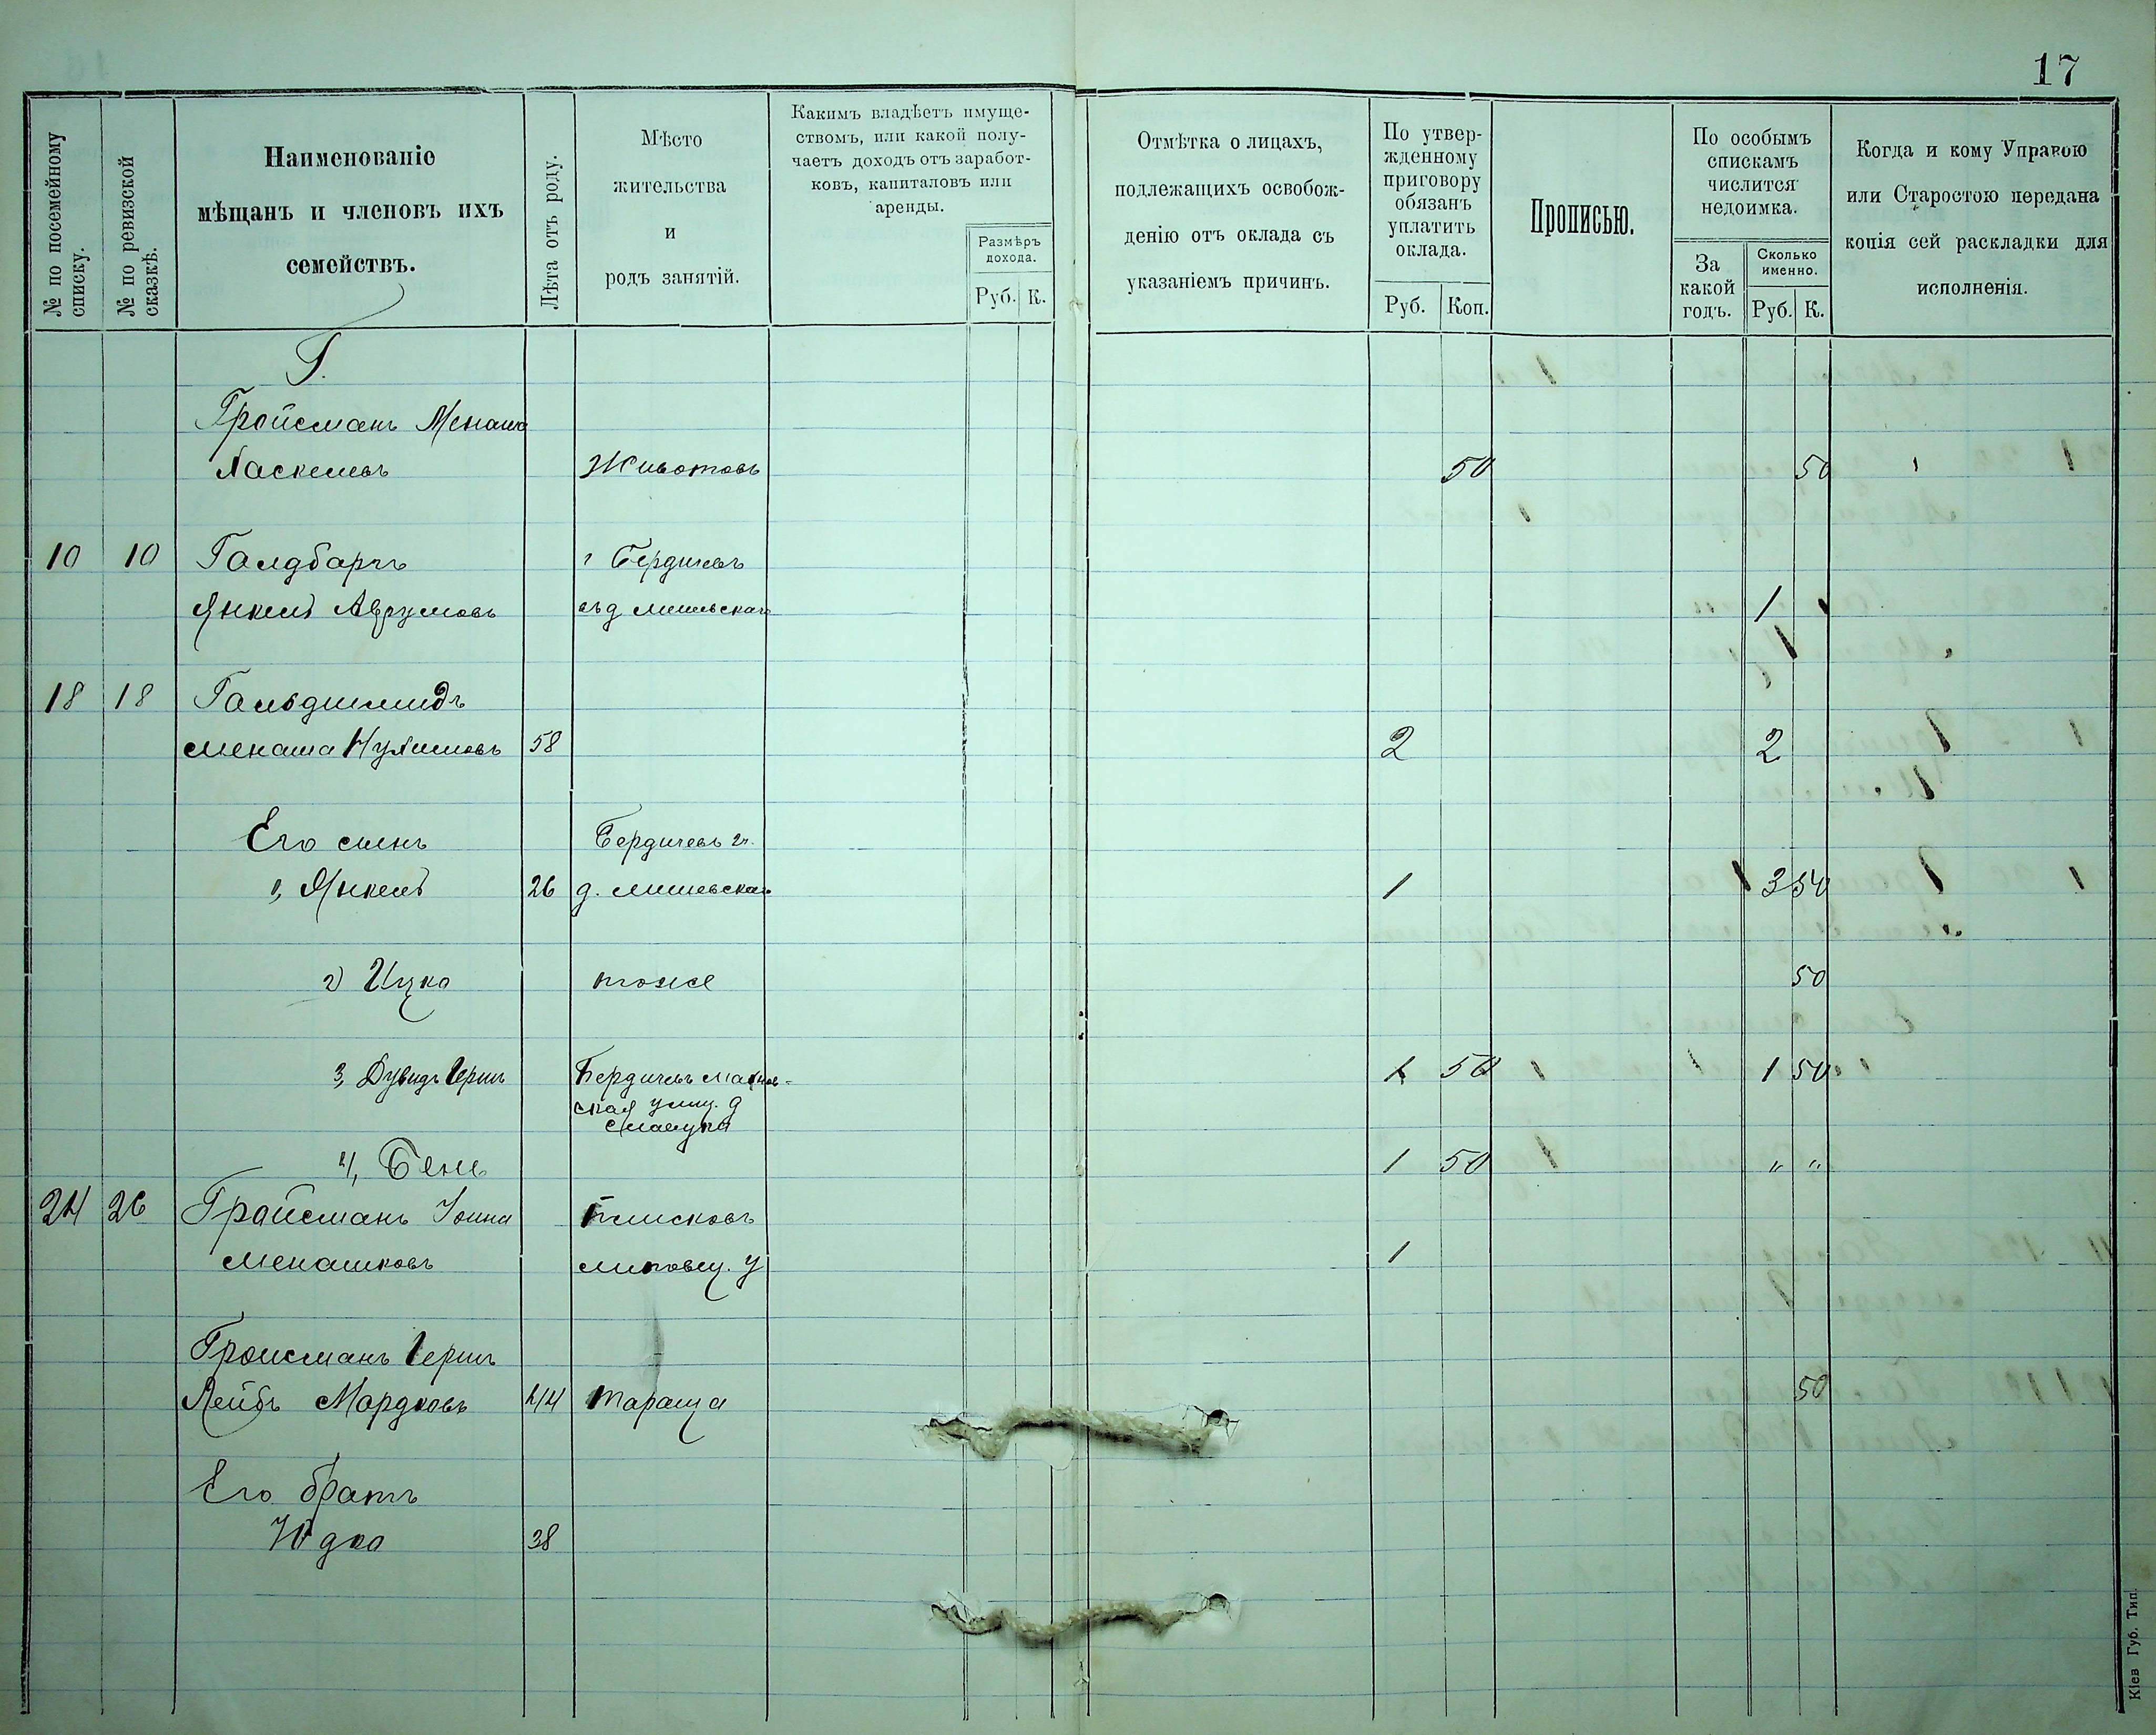 17
№ по посемейному списку.
№ по ревизской сказкѣ.
Наименованіе
мѣщанъ и членовъ ихъ
семействъ.
Лѣта отъ роду.
Мѣсто
жительства
и
родъ занятій.
Какимъ владѣетъ имуще-
ствомъ, или какой полу-
чаетъ доходъ отъ заработ-
ковъ, капиталовъ или
аренды.
Размѣръ
дохода.
Руб. К.
Отмѣтка о лицахъ,
подлежащихъ освобож-
денію отъ оклада съ
указаніемъ причинъ.
По утвер-
жденному
приговору
обязанъ
уплатить
оклада.
Руб. Коп.
Прописью.
По особымъ
спискамъ
числится
недоимка.
За
какой
годъ.
Сколько
именно.
Руб. К.
Когда и кому Управою
или Старостою передана
копія сей раскладки для
исполненія.
Г.
Гройсманъ Менаша
Хаскелевъ Животовъ 50 50
10 10 Галдбартъ г Бердичевъ
Янкель Аврумовъ 1
18 18 Гальдшмидъ
Менаша Нухимовъ 58 2 2
Его сынъ Бердичевъ
1, Янкель 26 д. 1 3 50
2) Ицко тоже 50
3, Дувидъ Герш Бердичевъ Махнов-
ская улиц. д 1 50 1 50
4, Бень 1 50 " "
24 26 Гройсманъ Іоина Плисковъ
Менашковъ Липовец. у 1
Гройсманъ Герш
Лейбъ Мордковъ 44 Тараща 50
Его братъ
Юдко 38
Кіев Губ. Тип.